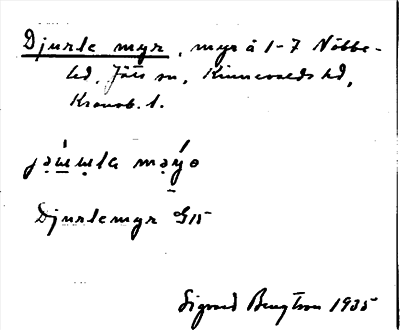 Djurle myr, myr å 1-7 Nöbbe-
led, Jäts sn, Kinnevalds hd,
Kronob. l.
Djurlemyr G15
Sigurd Bengtson 1935